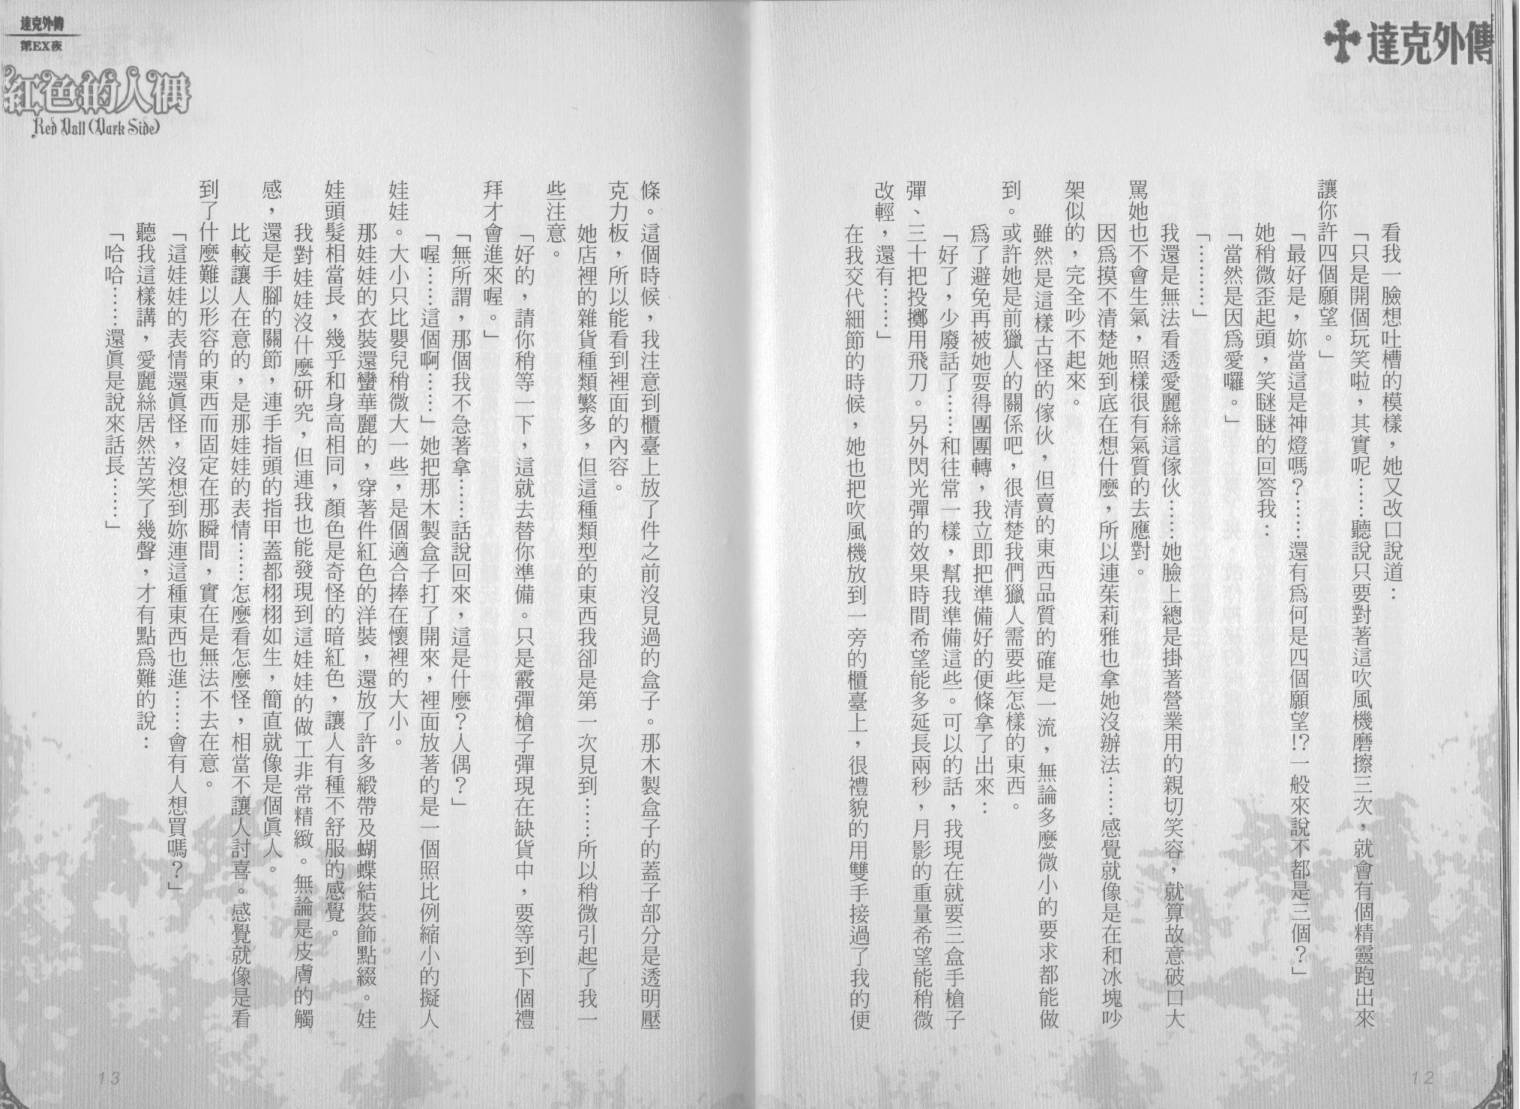 達克外傳
看我一臉想吐槽的模樣，她又改口說道：
「只是開個玩笑啦，其實呢……聽說只要對著這吹風機磨擦三次，就會有個精靈跑出來
讓你許四個願望。」
「最好是，妳當這是神燈嗎？……還有爲何是四個願望!?一般來說不都是三個？」
她稍微歪起頭，笑瞇瞇的回答我：
「當然是因爲愛囉。」
「…………」
我還是無法看透愛麗絲這傢伙……她臉上總是掛著營業用的親切笑容，就算故意破口大
罵她也不會生氣，照樣很有氣質的去應對。
因爲摸不清楚她到底在想什麼，所以連茱莉雅也拿她沒辦法……感覺就像是在和冰塊吵
架似的，完全吵不起來。
雖然是這樣古怪的傢伙，但賣的東西品質的確是一流，無論多麼微小的要求都能做
到。或許她是前獵人的關係吧，很清楚我們獵人需要些怎樣的東西。
爲了避免再被她耍得團團轉，我立即把準備好的便條拿了出來：
「好了，少廢話了……和往常一樣，幫我準備這些。可以的話，我現在就要三盒手槍子
彈、三十把投擲用飛刀。另外閃光彈的效果時間希望能多延長兩秒，月影的重量希望能稍微
改輕，還有……」
在我交代細節的時候，她也把吹風機放到一旁的櫃臺上，很禮貌的用雙手接過了我的便
12
達克外傳
第EX夜
紅色的人偶
Red Doll (Dark Side)
條。這個時候，我注意到櫃臺上放了件之前沒見過的盒子。那木製盒子的蓋子部分是透明壓
克力板，所以能看到裡面的內容。
她店裡的雜貨種類繁多，但這種類型的東西我卻是第一次見到……所以稍微引起了我一
些注意。
「好的，請你稍等一下，這就去替你準備。只是霰彈槍子彈現在缺貨中，要等到下個禮
拜才會進來喔。」
「無所謂，那個我不急著拿……話說回來，這是什麼？人偶？」
「喔……這個啊……」她把那木製盒子打了開來，裡面放著的是一個照比例縮小的擬人
娃娃。大小只比嬰兒稍微大一些，是個適合捧在懷裡的大小。
那娃娃的衣裝還蠻華麗的，穿著件紅色的洋裝，還放了許多緞帶及蝴蝶結裝飾點綴。娃
娃頭髮相當長，幾乎和身高相同，顏色是奇怪的暗紅色，讓人有種不舒服的感覺。
我對娃娃沒什麼研究，但連我也能發現到這娃娃的做工非常精緻。無論是皮膚的觸
感，還是手腳的關節，連手指頭的指甲蓋都栩栩如生，簡直就像是個眞人。
比較讓人在意的，是那娃娃的表情……怎麼看怎麼怪，相當不讓人討喜。感覺就像是看
到了什麼難以形容的東西而固定在那瞬間，實在是無法不去在意。
「這娃娃的表情還眞怪，沒想到妳連這種東西也進……會有人想買嗎？」
聽我這樣講，愛麗絲居然苦笑了幾聲，才有點爲難的說：
「哈哈……還眞是說來話長……」
13